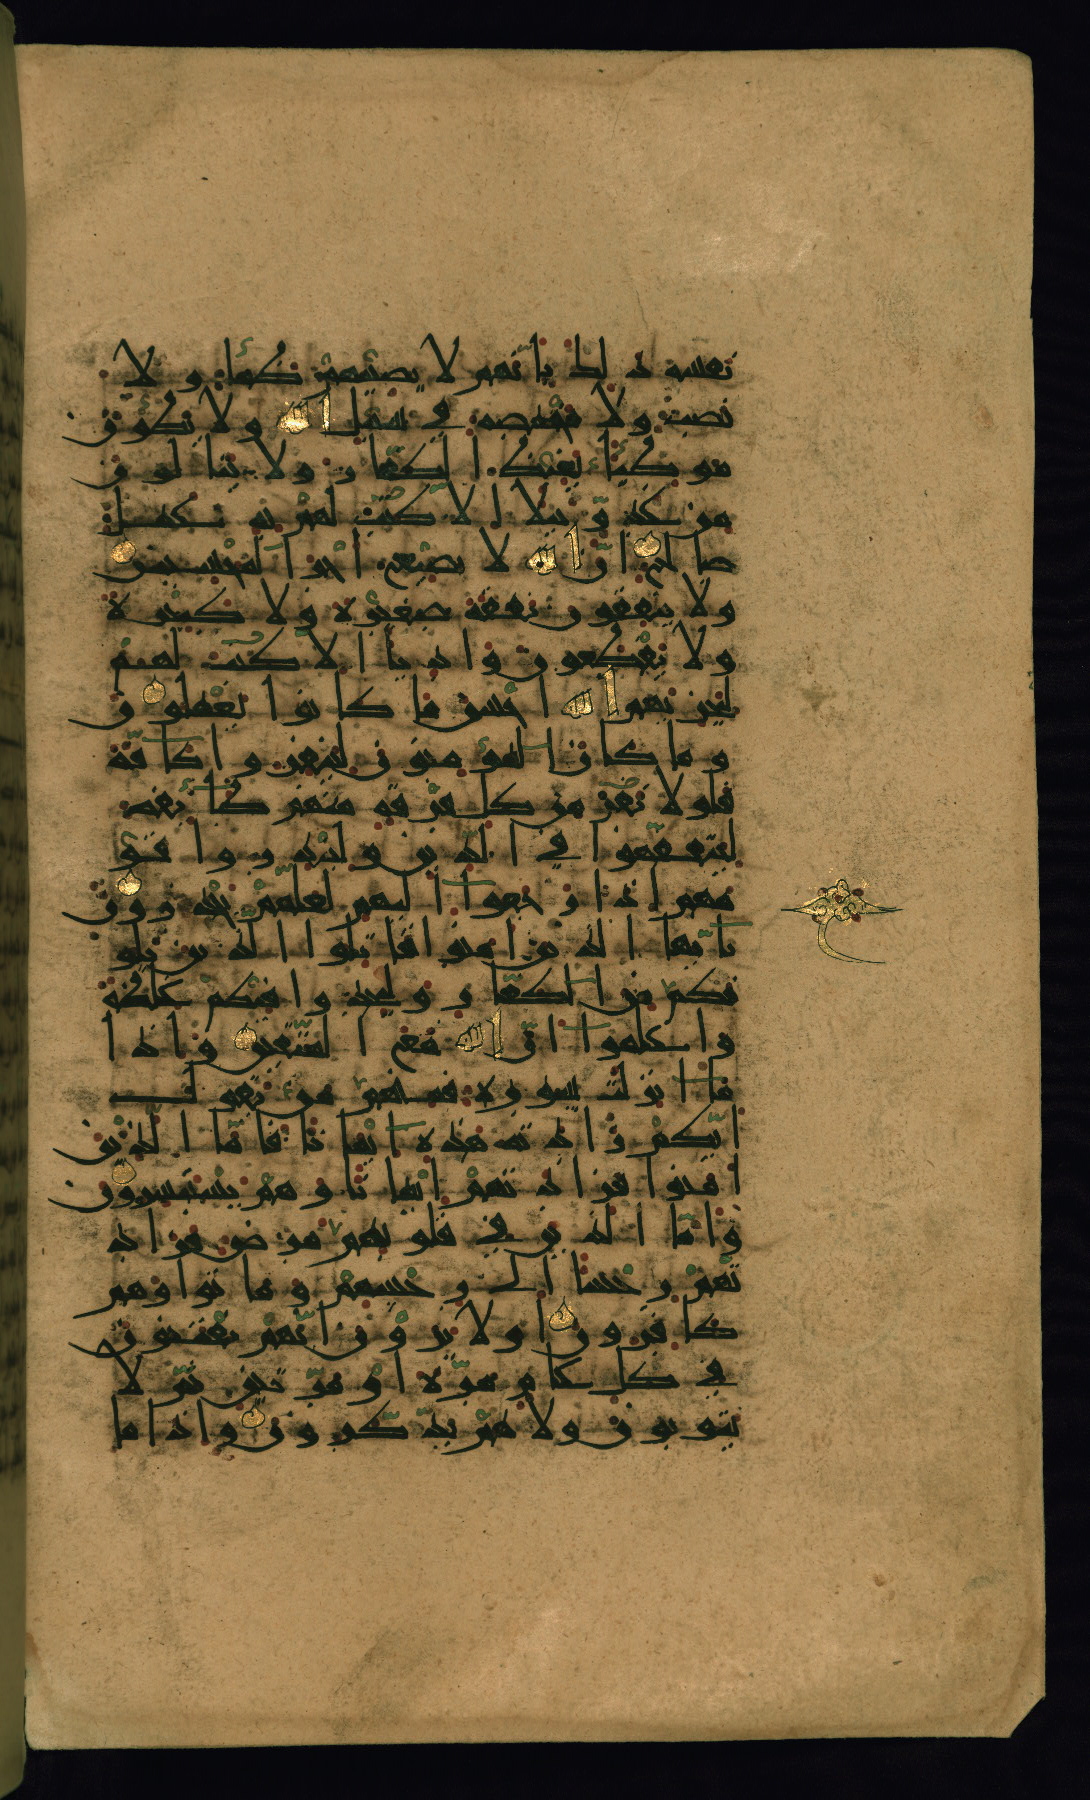 نفسه ذلك بانهم لا يصيبهم ظما ولا
نصب ولا مخمصة في سبيل الله ولا يطون
موطيا يغيظ الكفار ولا ينالون
من عدو نيلا الا كتب لهم به عمل
صالح ان الله لا يضيع اجر المحسنين
ولا ينفقون نفقة صغيرة ولا كبيرة
ولا يقطعون واديا الا كتب لهم
ليجزيهم الله احسن ما كانوا يعملون
وما كان المومنون لينفروا كافة
فلولا نفر من كل فرقة منهم طايفة
ليتفقهوا في الدين ولينذروا قو
مهم اذا رجعوا اليهم لعلهم يحذرون
يايها الذين امنوا قاتلوا الذين يلو
نكم من الكفار وليجدوا فيكم غلظة
واعلموا ان الله مع المتقين واذا
ما انزلت سورة فمنهم من يقول
ايكم زادته هذه ايمانا فاما الذين
امنوا فزادتهم ايمانا وهم يستبشرون
واما الذين في قلوبهم مرض فزاد
تهم رجسا الى رجسهم وماتوا وهم
كافرون اولا يرون انهم يفتنون
في كل عام مرة او مرتين ثم لا
يتوبون ولا هم يذكرون واذا ما